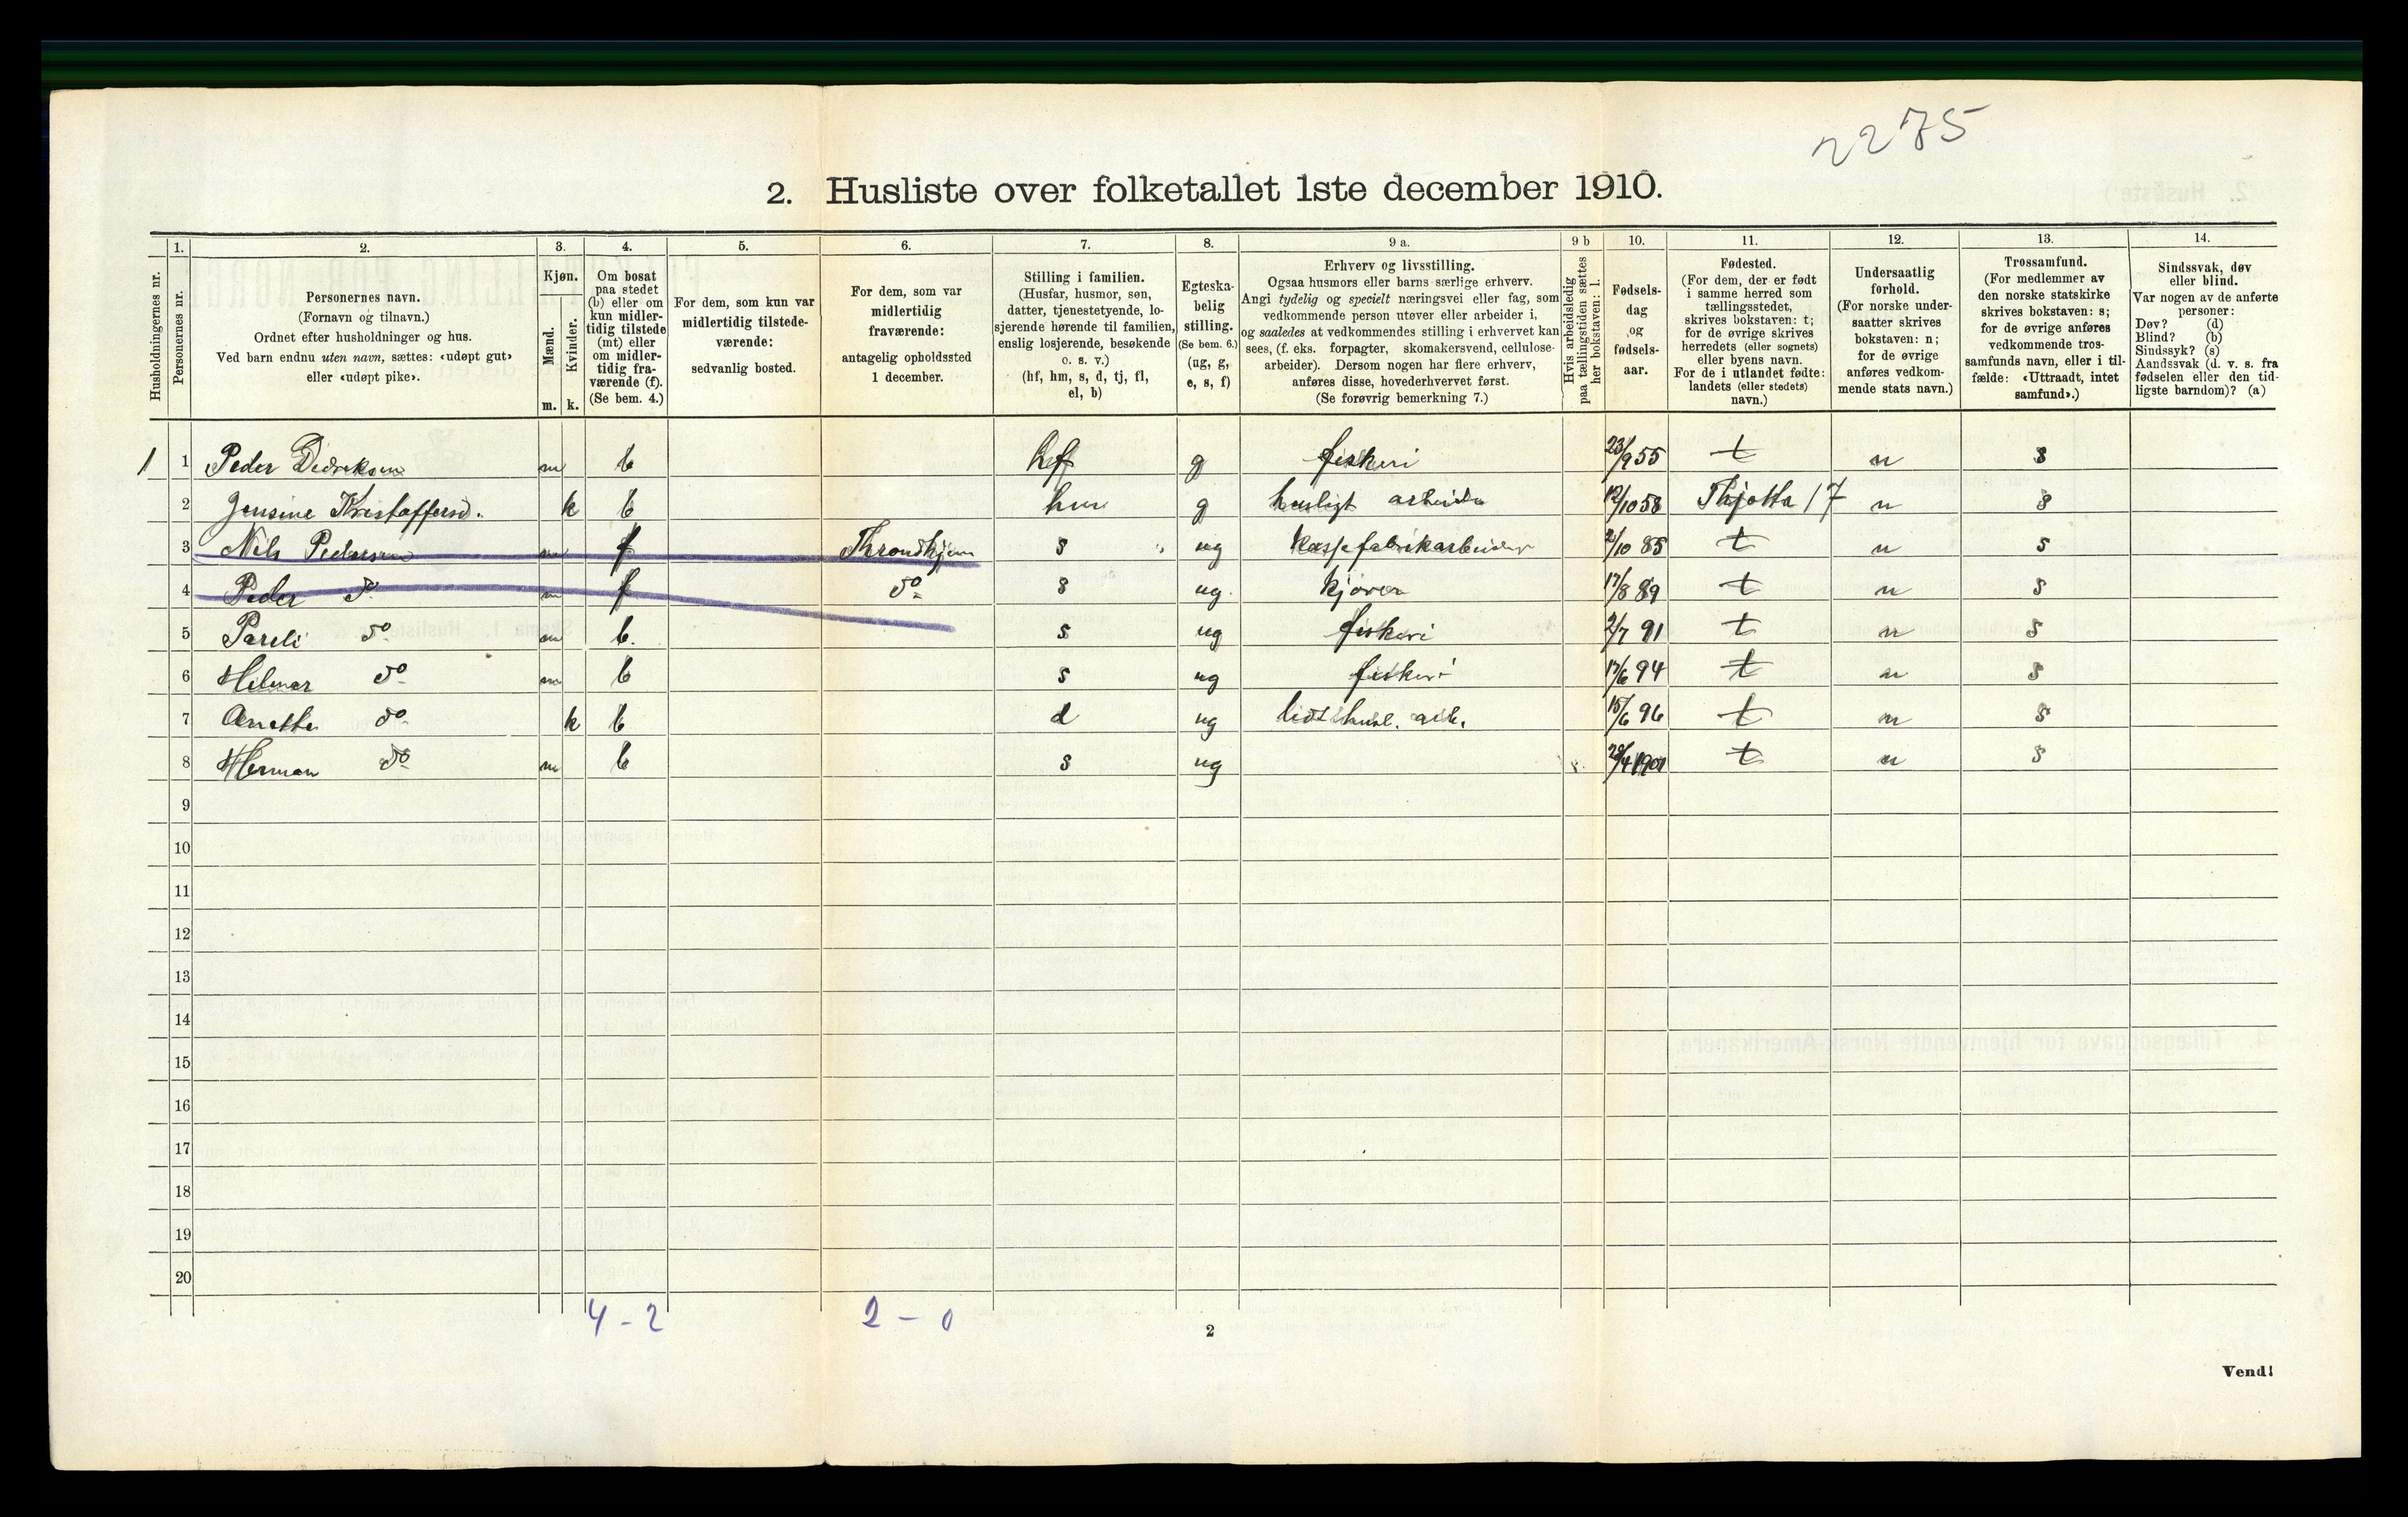 2275
2. Husliste over folketallet 1ste december 1910.
Husholdningernes nr.
1. Personernes nr.
2. Personernes navn.
(Fornavn og tilnavn.)
Ordnet efter husholdninger og hus.
Ved barn endnu uten navn, sættes: «udøpt gut»
eller «udøpt pike».
3. Kjøn.
Mænd. Kvinder.
m. k.
4. Om bosat
paa stedet
(b) eller om
kun midler-
tidig tilstede
(mt) eller
om midler-
tidig fra-
værende (f).
(Se bem. 4.)
5. For dem, som kun var
midlertidig tilstede-
værende:
sedvanlig bosted.
6. For dem, som var
midlertidig
fraværende:
antagelig opholdssted
1 december.
7. Stilling i familien.
(Husfar, husmor, søn,
datter, tjenestetyende, lo-
sjerende hørende til familien,
enslig losjerende, besøkende
o. s. v.)
(hf, hm, s, d, tj, fl,
el, b)
8. Egteska-
belig
stilling.
(Se bem. 6.)
(ug, g,
e, s, f)
9 a. Erhverv og livsstilling.
Ogsaa husmors eller barns særlige erhverv.
Angi tydelig og specielt næringsvei eller fag, som
vedkommende person utøver eller arbeider i,
og saaledes at vedkommendes stilling i erhvervet kan
sees, (f. eks. forpagter, skomakersvend, cellulose-
arbeider). Dersom nogen har flere erhverv,
anføres disse, hovederhvervet først.
(Se forøvrig bemerkning 7.)
9 b Hvis arbeidsledig
paa tællingstiden sættes
her bokstaven: l.
10. Fødsels-
dag
og
fødsels-
aar.
11. Fødested.
(For dem, der er født
i samme herred som
tællingsstedet,
skrives bokstaven: t;
for de øvrige skrives
herredets (eller sognets)
eller byens navn.
For de i utlandet fødte:
landets (eller stedets)
navn.)
12. Undersaatlig
forhold.
(For norske under-
saatter skrives
bokstaven: n;
for de øvrige
anføres vedkom-
mende stats navn.)
13. Trossamfund.
(For medlemmer av
den norske statskirke
skrives bokstaven: s;
for de øvrige anføres
vedkommende tros-
samfunds navn, eller i til-
fælde: «Uttraadt, intet
samfund».)
14. Sindssvak, døv
eller blind.
Var nogen av de anførte
personer:
Døv? (d)
Blind? (b)
Sindssyk? (s)
Aandssvak (d. v. s. fra
fødselen eller den tid-
ligste barndom)? (a)
1 1 Peder Dedreksen m b hf g fiskeri 23/9 55 t n s
2 Jensine Kristoffersd. k b hm g husligt arbeide 12/10 58 Thjøtta 17 n s
3 Nils Pedersen m f Throndhjem s ug kassefabrikarbeider 2/10 85 t n s
4 Peder do m f do s ug kjører 17/8 89 t n s
5 Pareli do m b. s ug fiskeri 2/7 91 t n s
6 Hilmar do m b s ug fiskeri 17/6 94 t n s
7 Anette do k b d ug lidt husl. arb. 15/6 96 t n s
8 Herman do m b s ug 28/4 1901 t n s
9
10
11
12
13
14
15
16
17
18
19
20
4 - 2 2 - 0
2
Vend!